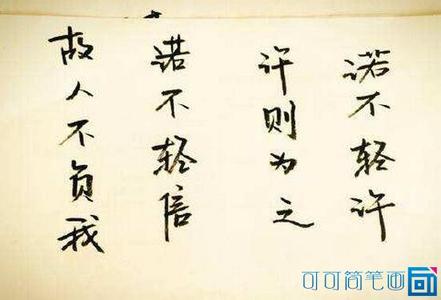 诺不轻许
许则为之
诺不轻信
故人不负我
可可简笔画